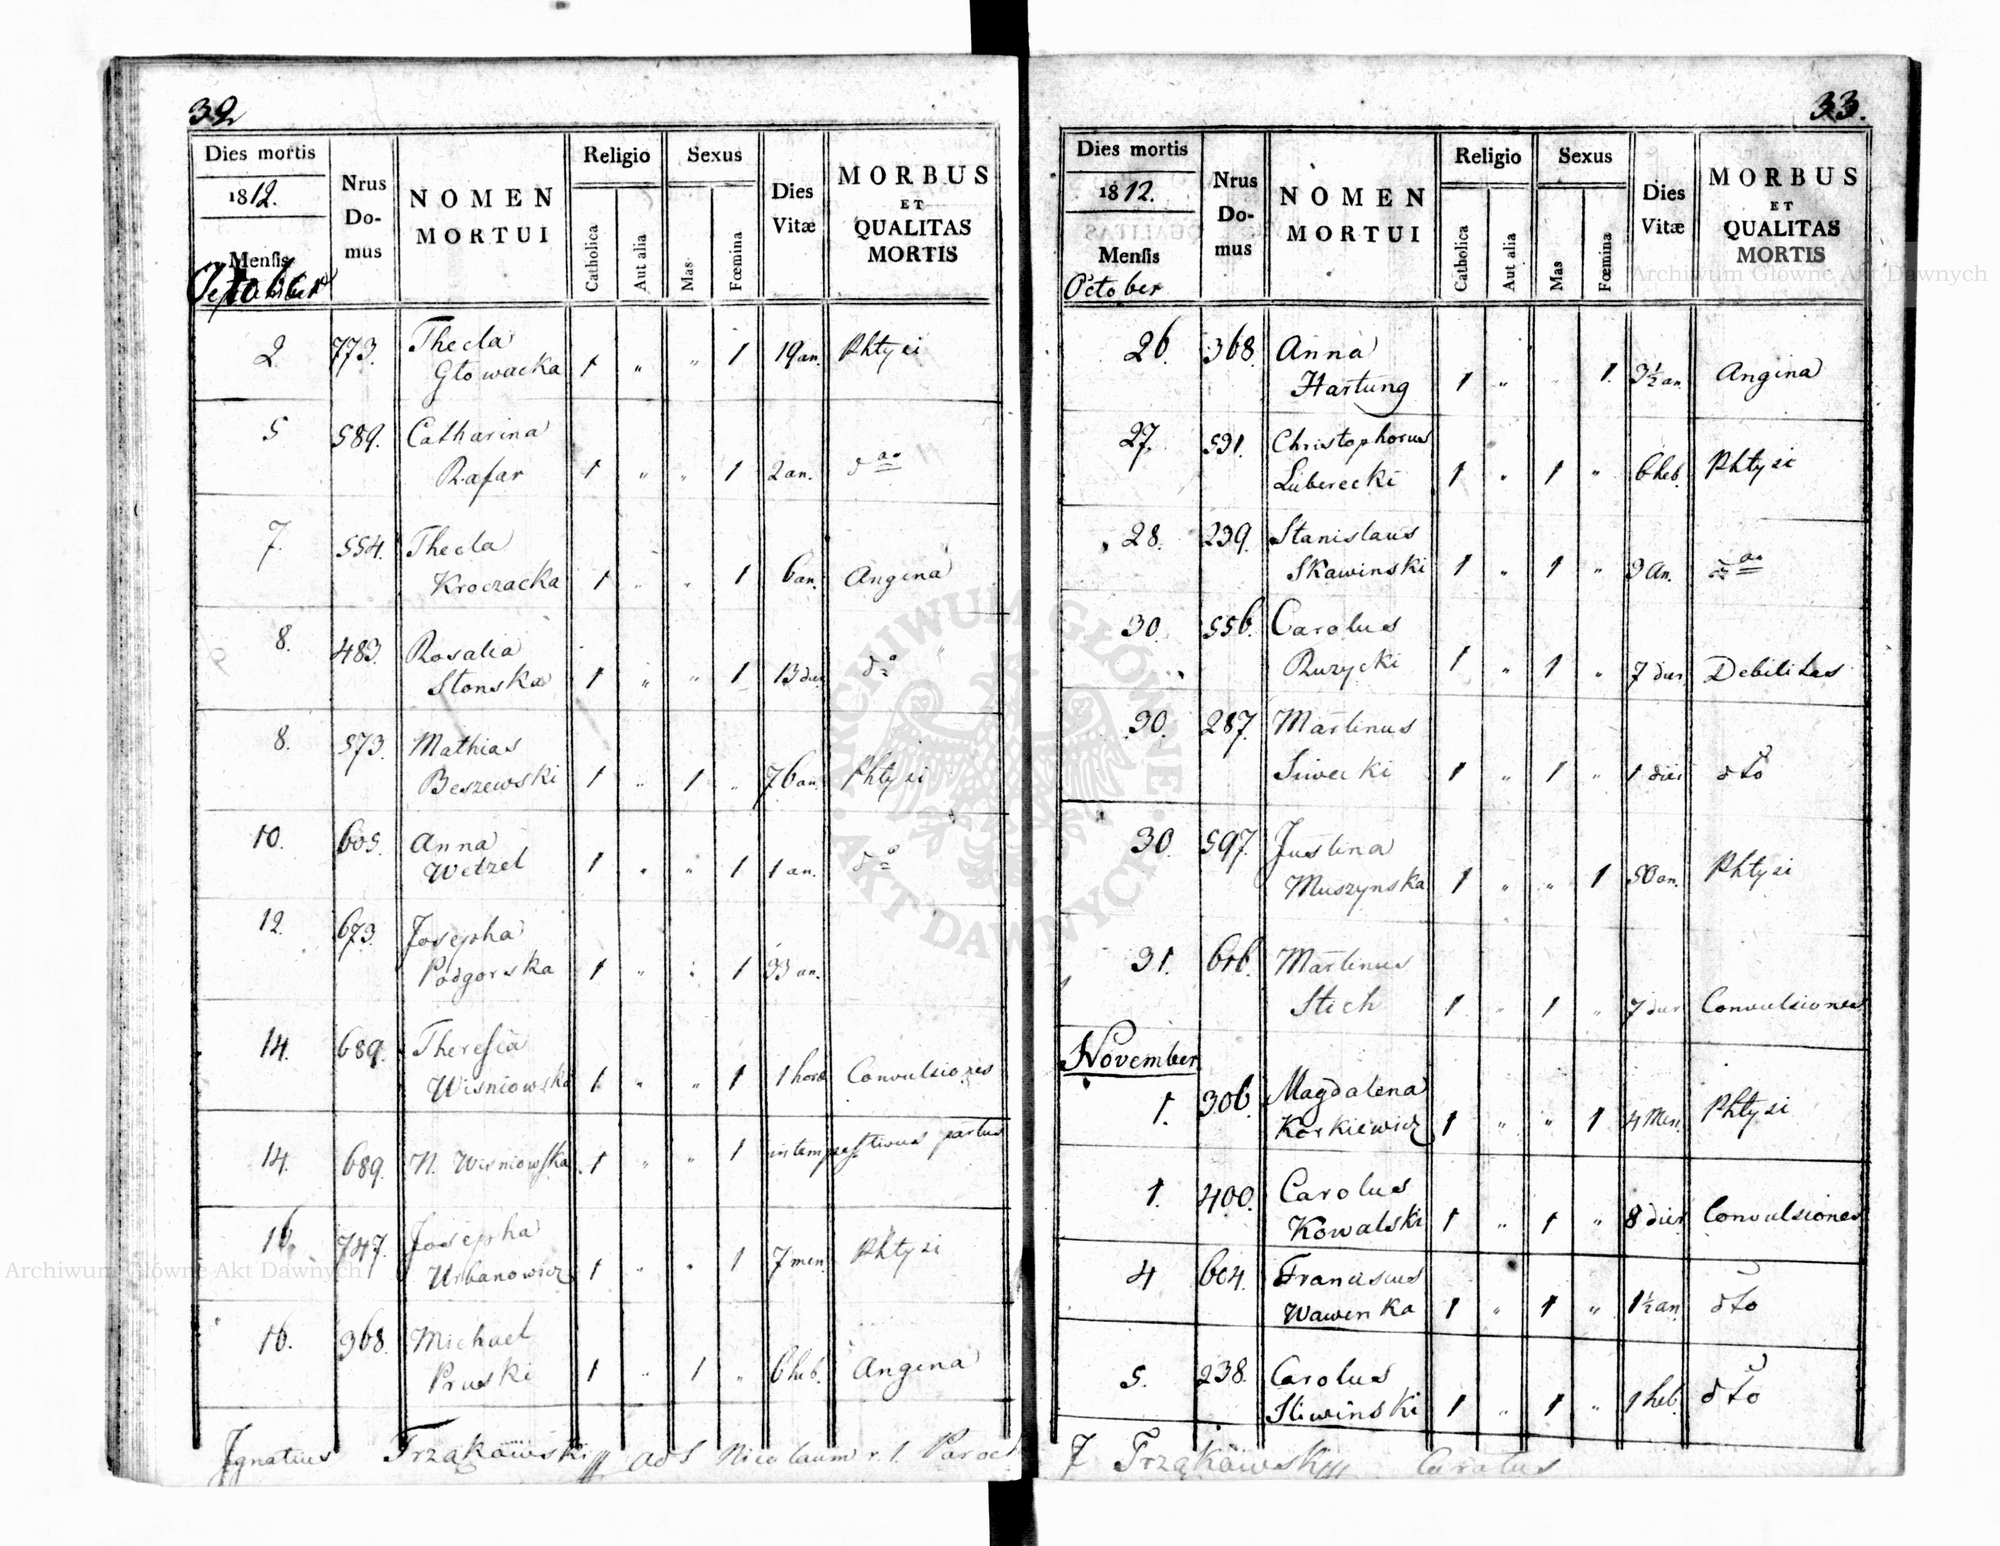 32
Dies mortis
1812.
Mensis
October
Nrus Do-mus
NOMEN MORTUI
Religio
Catholica
Aut alia
Sexus
Mas
Fœmina
Dies Vitæ
MORBUS ET QUALITAS MORTIS
2. 773. Thecla
Głowacka 1 " " 1 19 an. Phtysi
5 589. Catharina
Rafar 1 " " 1 2 an. d ao
7. 554. Thecla
Kroczacka 1 " " 1 6 an. Angina
8. 483. Rosalia
Stonska 1 " " 1 13 dier do
8. 573. Mathias
Beszewski 1 " 1 " 76 an. Phtysi
10. 605. Anna
Wetzel 1 " " 1 1 an. do
12. 673. Josepha
Podgorska 1 " " 1 33 an.
14. 689. Theresia
Wisniowska 1 " " 1 1 hora Convulsiones
14. 689. N. Wisniowska 1 " " 1 intempestivus partus
16. 747. Josepha
Urbanowicz 1 " " 1 7 men. Phtysi
16. 368. Michael
Pruski 1 " 1 " 6 heb. Angina
Ignatius Trząkawski ad S Nicolaum r. l. Paroch
33.
Dies mortis
1812.
Mensis
October
Nrus Do-mus
NOMEN MORTUI
Religio
Catholica
Aut alia
Sexus
Mas
Fœmina
Dies Vitæ
MORBUS ET QUALITAS MORTIS
26. 368. Anna
Hartung 1 " " 1. 3½ an Angina
27. 591. Christophorus
Luberecki 1 " 1 " 6 heb. Phtysi
28. 239. Stanislaus
Skawinski 1 " 1 " 3 an. d ao
30. 556. Carolus
Ruzycki 1 " 1 " 7 dier Debilitas
30. 287. Martinus
Siwecki 1 " 1 " 1 diei dto
30. 597. Justina
Muszynska 1 " " 1 50 an. Phtysi
31. 616. Martinus
Stich 1 " 1 " 7 dier Convulsiones
November
1. 306. Magdalena
Korkiewicz 1 " " 1 4 Men. Phtysi
1. 400. Carolus
Kowalski 1 " 1 " 8 dier Convulsiones
4 604. Franciscus
Wawenka 1 " 1 " 1½ an dto
5. 238. Carolus
Sliwinski 1 " 1 " 1 heb. dto
J Trząkawski Curatus
ARCHIWUM GŁÓWNE AKT DAWNYCH
Archiwum Główne Akt Dawnych
Archiwum Główne Akt Dawnych